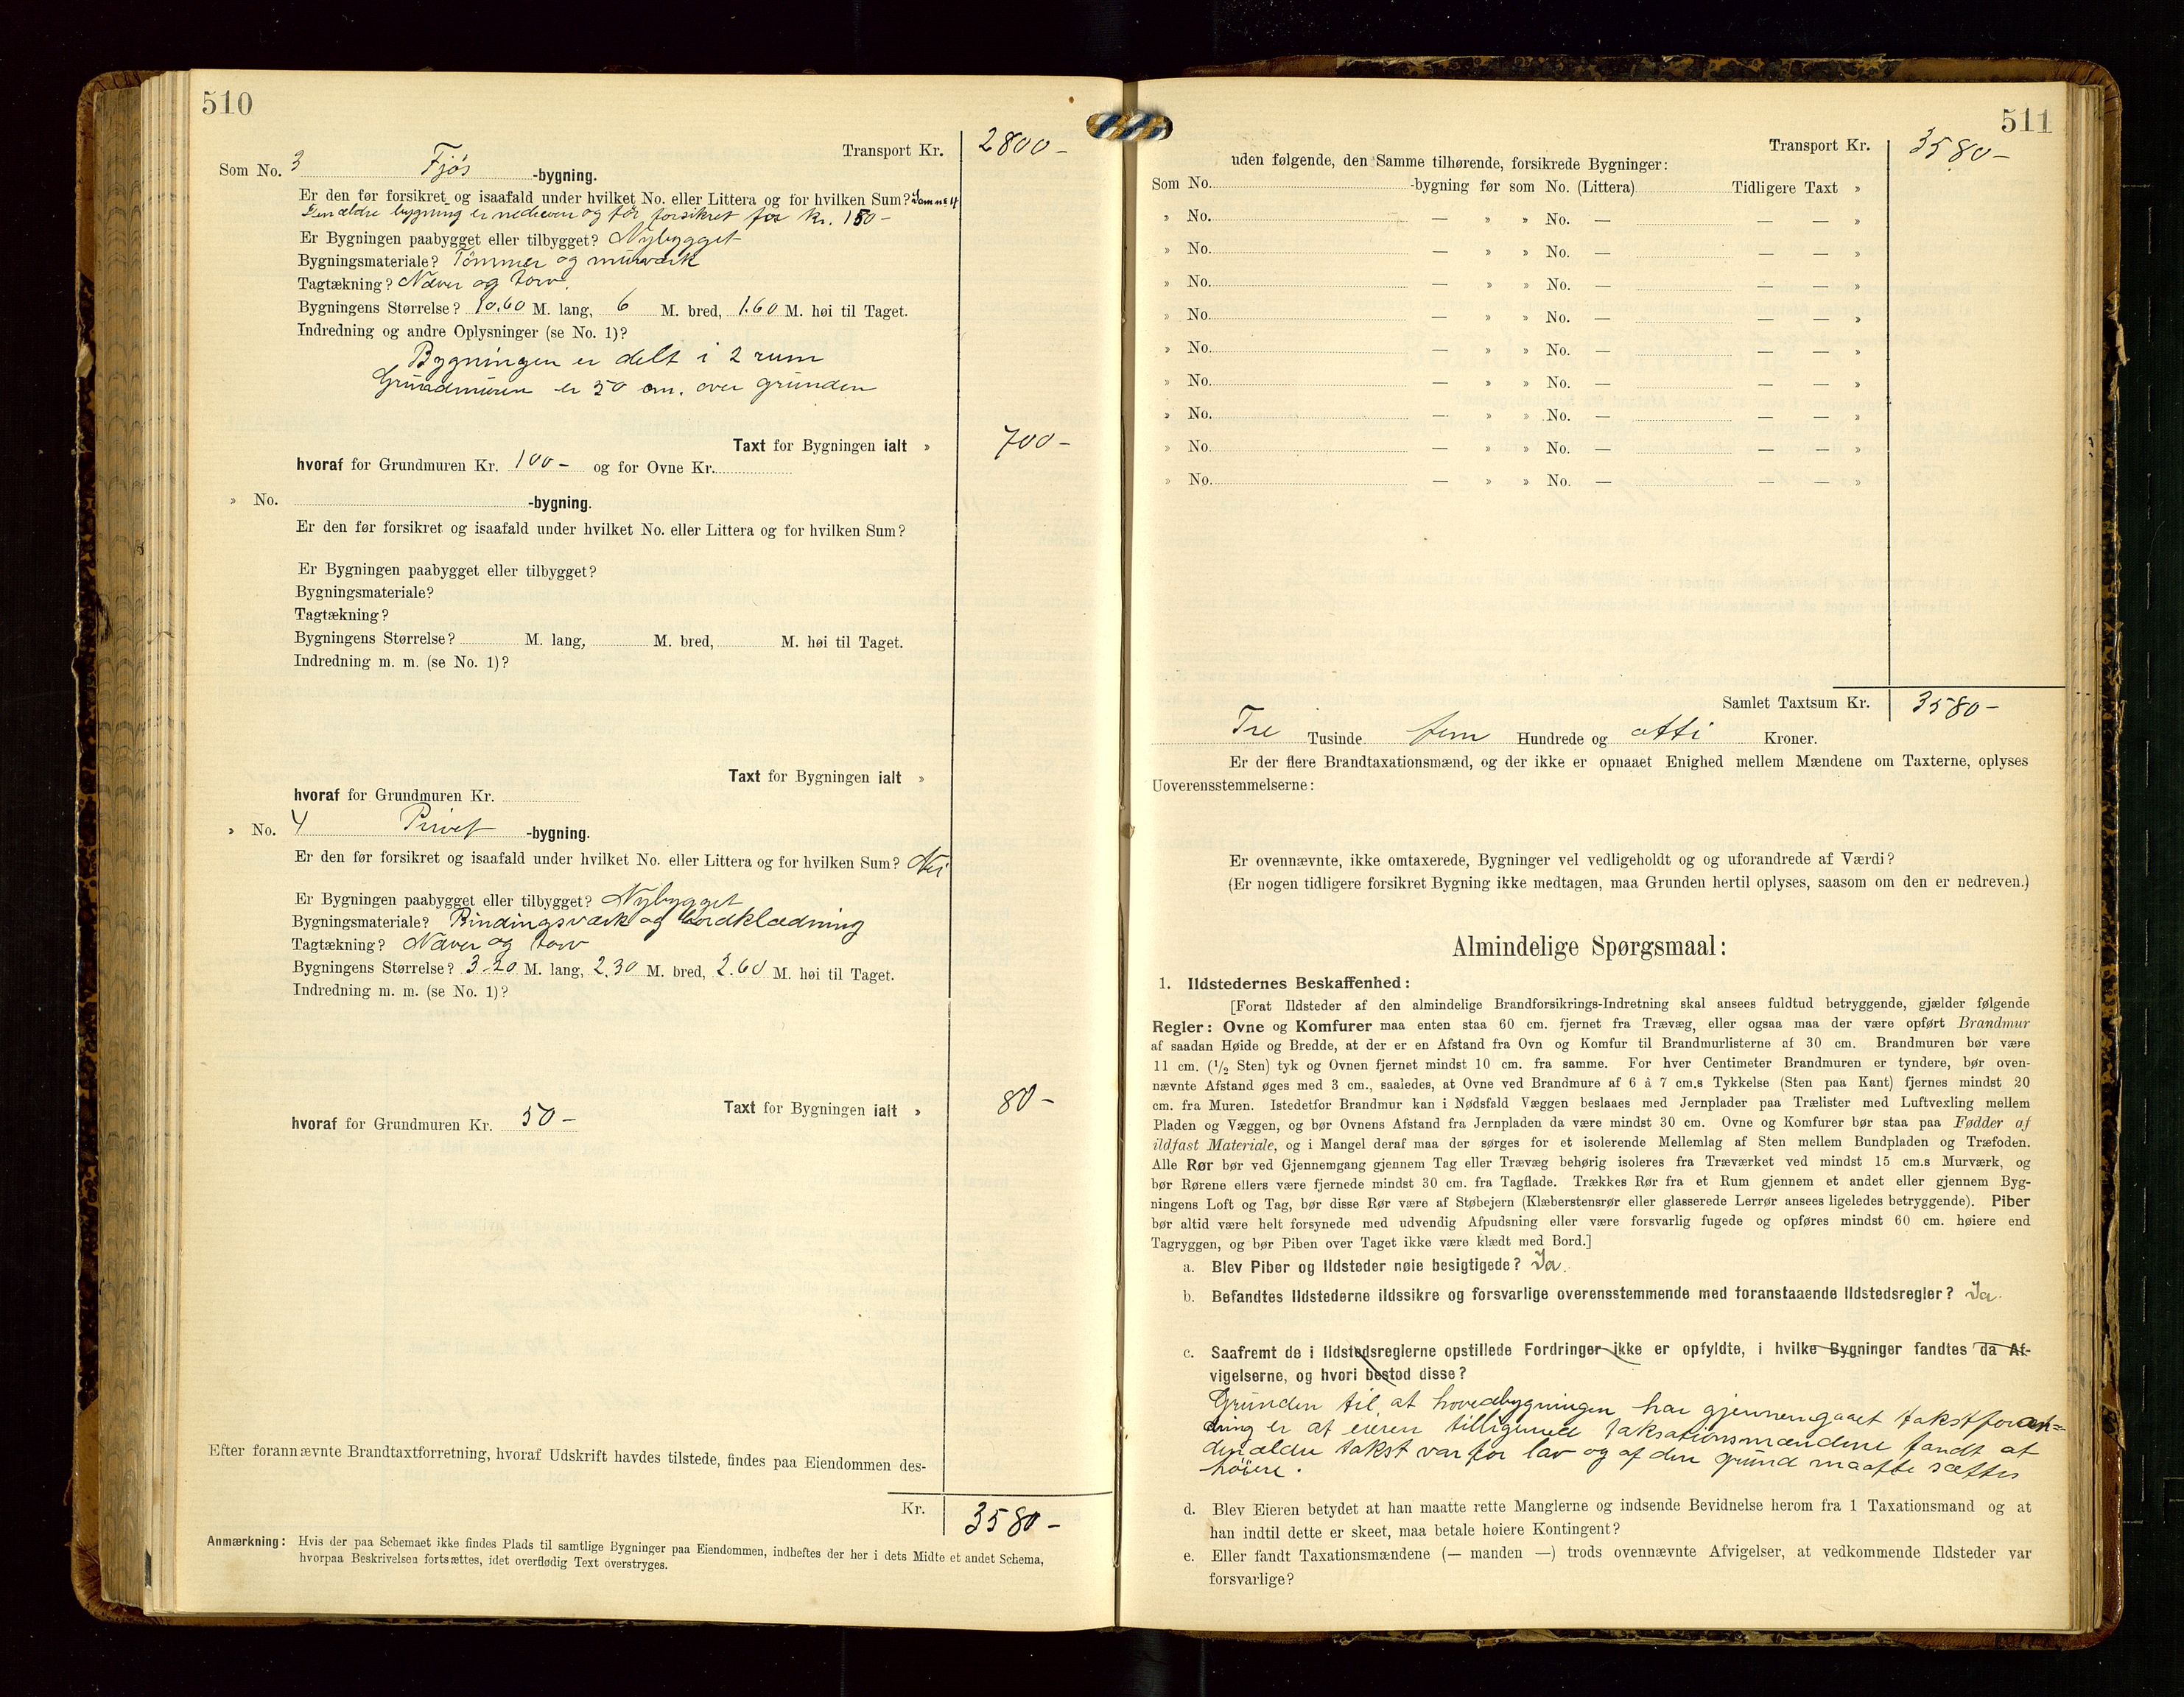 510
Transport Kr. 2800-
Som No. 3 Fjøs -bygning.
Er den før forsikret og isaafald under hvilket No. eller Littera og for hvilken Sum? Som No 4
Den ældre bygning er nedreven og før forsikret for kr. 150-
Er Bygningen paabygget eller tilbygget? Nybygget
Bygningsmateriale? Tømmer og murværk
Tagtækning? Næver og torv.
Bygningens Størrelse? 10.60 M. lang, 6 M. bred, 1.60 M. høi til Taget.
Indredning og andre Oplysninger (se No. 1)?
Bygningen er delt i 2 rum
Grundmuren er 50 cm. over grunden
Taxt for Bygningen ialt » 700-
hvoraf for Grundmuren Kr. 100- og for Ovne Kr.
» No. -bygning.
Er den før forsikret og isaafald under hvilket No. eller Littera og for hvilken Sum?
Er Bygningen paabygget eller tilbygget?
Bygningsmateriale?
Tagtækning?
Bygningens Størrelse? M. lang, M. bred, M. høi til Taget.
Indredning m. m. (se No. 1)?
Taxt for Bygningen ialt »
hvoraf for Grundmuren Kr.
» No. 4 Privet -bygning.
Er den før forsikret og isaafald under hvilket No. eller Littera og for hvilken Sum? Nei
Er Bygningen paabygget eller tilbygget? Nybygget
Bygningsmateriale? Bindingsværk og bordklædning
Tagtækning? Næver og torv
Bygningens Størrelse? 3.20 M. lang, 2.30 M. bred, 2.60 M. høi til Taget.
Indredning m. m. (se No. 1)?
Taxt for Bygningen ialt » 80-
hvoraf for Grundmuren Kr. 50-
Efter forannævnte Brandtaxtforretning, hvoraf Udskrift havdes tilstede, findes paa Eiendommen des-
Kr. 3580-
Anmærkning: Hvis der paa Schemaet ikke findes Plads til samtlige Bygninger paa Eiendommen, indheftes der her i dets Midte et andet Schema,
hvorpaa Beskrivelsen fortsættes, idet overflødig Text overstryges.
511
Transport Kr. 3580-
uden følgende, den Samme tilhørende, forsikrede Bygninger:
Som No. -bygning før som No. (Littera) Tidligere Taxt »
» No. — » » No. — — — »
» No. — » » No. — — — »
» No. — » » No. — — — »
» No. — » » No. — — — »
» No. — » » No. — — — »
» No. — » » No. — — — »
» No. — » » No. — — — »
» No. — » » No. — — — »
» No. — » » No. — — — »
Samlet Taxtsum Kr. 3580-
Tre Tusinde fem Hundrede og otti Kroner.
Er der flere Brandtaxationsmænd, og der ikke er opnaaet Enighed mellem Mændene om Taxterne, oplyses
Uoverensstemmelserne:
Er ovennævnte, ikke omtaxerede, Bygninger vel vedligeholdt og og uforandrede af Værdi?
(Er nogen tidligere forsikret Bygning ikke medtagen, maa Grunden hertil oplyses, saasom om den er nedreven.)
Almindelige Spørgsmaal:
1. Ildstedernes Beskaffenhed:
[Forat Ildsteder af den almindelige Brandforsikrings-Indretning skal ansees fuldtud betryggende, gjælder følgende
Regler: Ovne og Komfurer maa enten staa 60 cm. fjernet fra Trævæg, eller ogsaa maa der være opført Brandmur
af saadan Høide og Bredde, at der er en Afstand fra Ovn og Komfur til Brandmurlisterne af 30 cm. Brandmuren bør være
11 cm. (1/2 Sten) tyk og Ovnen fjernet mindst 10 cm. fra samme. For hver Centimeter Brandmuren er tyndere, bør oven-
nævnte Afstand øges med 3 cm., saaledes, at Ovne ved Brandmure af 6 à 7 cm.s Tykkelse (Sten paa Kant) fjernes mindst 20
cm. fra Muren. Istedetfor Brandmur kan i Nødsfald Væggen beslaaes med Jernplader paa Trælister med Luftvexling mellem
Pladen og Væggen, og bør Ovnens Afstand fra Jernpladen da være mindst 30 cm. Ovne og Komfurer bør staa paa Fødder af
ildfast Materiale, og i Mangel deraf maa der sørges for et isolerende Mellemlag af Sten mellem Bundpladen og Træfoden.
Alle Rør bør ved Gjennemgang gjennem Tag eller Trævæg behørig isoleres fra Træværket ved mindst 15 cm.s Murværk, og
bør Rørene ellers være fjernede mindst 30 cm. fra Tagflade. Trækkes Rør fra et Rum gjennem et andet eller gjennem Byg-
ningens Loft og Tag, bør disse Rør være af Støbejern (Klæberstensrør eller glasserede Lerrør ansees ligeledes betryggende). Piber
bør altid være helt forsynede med udvendig Afpudsning eller være forsvarlig fugede og opføres mindst 60 cm. høiere end
Tagryggen, og bør Piben over Taget ikke være klædt med Bord.]
a. Blev Piber og Ildsteder nøie besigtigede? Ja.
b. Befandtes Ildstederne ildssikre og forsvarlige overensstemmende med foranstaaende Ildstedsregler? Ja.
c. Saafremt de i Ildstedsreglerne opstillede Fordringer ikke er opfyldte, i hvilke Bygninger fandtes da Af-
vigelserne, og hvori bestod disse?
Grunden til at hovedbygningen har gjennemgaaet takstforan-
dring er at eieren tilligemed taksationsmændene fandt at
den ældre takst var for lav og af den grund maatte sættes
høiere.
d. Blev Eieren betydet at han maatte rette Manglerne og indsende Bevidnelse herom fra 1 Taxationsmand og at
han indtil dette er skeet, maa betale høiere Kontingent?
e. Eller fandt Taxationsmændene (— manden —) trods ovennævnte Afvigelser, at vedkommende Ildsteder var
forsvarlige?